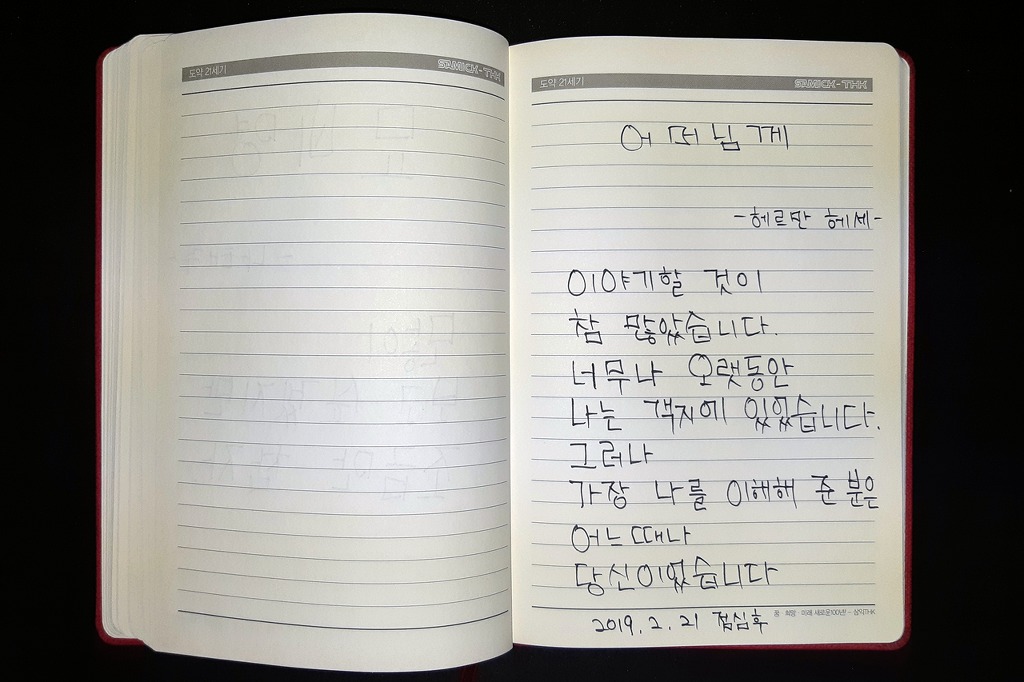 도약 21세기 SAMICK-THK
도약 21세기 SAMICK-THK
어머님께
-헤르만 헤세-
이야기할 것이
참 많았습니다.
너무나 오랫동안
나는 객지에 있었습니다.
그러나
가장 나를 이해해 준 분은
어느때나
당신이었습니다
꿈 · 희망 · 미래 새로운100년! - 삼익THK
2019. 2. 21 점심후